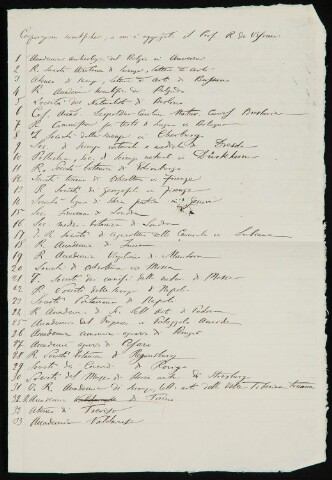 Corporazioni scientifiche, a cui è aggregato il Prof. R. de Visiani
1 Accademia archeologica del Belgio in Anversa
2 R. Società Aretina di scienze, lettere e arti
3 Ateneo di scienze, lettere e arti di Bassano
4 R. Accademia scientifica del Belgio
5 Società dei Naturalisti di Berlino
6 Ces. Accad. Leopoldino Carolina Naturae Curios. Breslavia
7 R. Commissione pei testi di lingua in Bologna
8 I. Società delle scienze in Cherbourg
9 Soc. di Scienze naturali e mediche di Dresda
10 Pollichia, Soc. di Scienze naturali in Dürckheim
11 R. Società botanica di Edemburgo
12 Società toscana di orticoltura in Firenze
13 R. Società di geografia in Firenze
14 Società ligure di Storia patria in Genova
15 Soc. Linneana di Londra
16 Soc. medico botanica di Londra
17 I. R. Società di agricoltura della Carniola in Lubiana
18 R. Accademia di Lucca
19 R. Accademia Virgiliana di Mantova
20 Società di orticoltura in Mosca
21 I. Società dei naturalisti di Mosca
22 R. Società delle scienze di Napoli
23 Società Pontaniana di Napoli
24 R. Accademia di Sc. lett. ed arti di Padova
25 Accademia in Valdarno
26 Accademia
27 Accademia di Pesaro
28 R. Società botanica di Regensburg
29 Società di Rovigo
30 Società del Museo di Storia natur. di Strasburg
31 I. R. Accademia di Scienze, lett. arti della Valle Tiberina toscana
32 R. Accademia di Torino
32 Ateneo di Treviso
33 Accademia Valdarnese